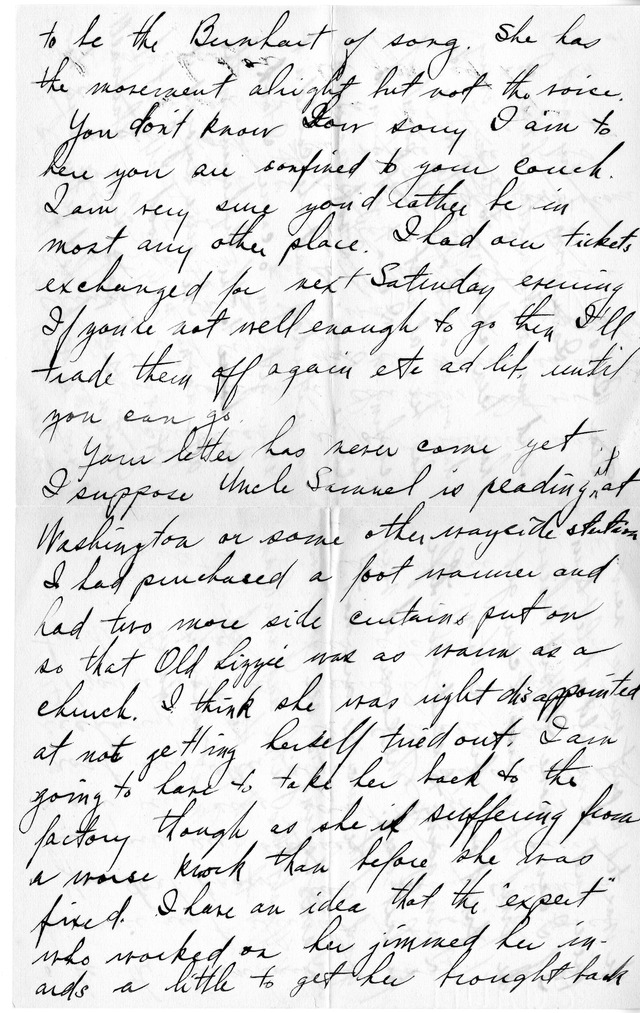 to be the Burnhart of song. She has
the movement alright but not the voice.
You don't know how sorry I am to
here you are confined to your couch.
I am very sure you'd rather be in
most any other place. I had our tickets
exchanged for next Saturday evening
If you're not well enough to go then I'll
trade them off again etc ad lib. until
you can go.
Your letter has never come yet.
I suppose Uncle Samuel is reading it at
Washington or some other wayside station
I had purchased a foot warmer and
had two more side curtains put on
so that Old Lizzie was as warm as a
church. I think she was right disappointed
at not getting herself tried out. I am
going to have to take her back to the
factory though as she is suffering from
a worse knock than before she was
fixed. I have an idea that the "expert"
who worked on her jimmed her in-
ards a little to get her brought back